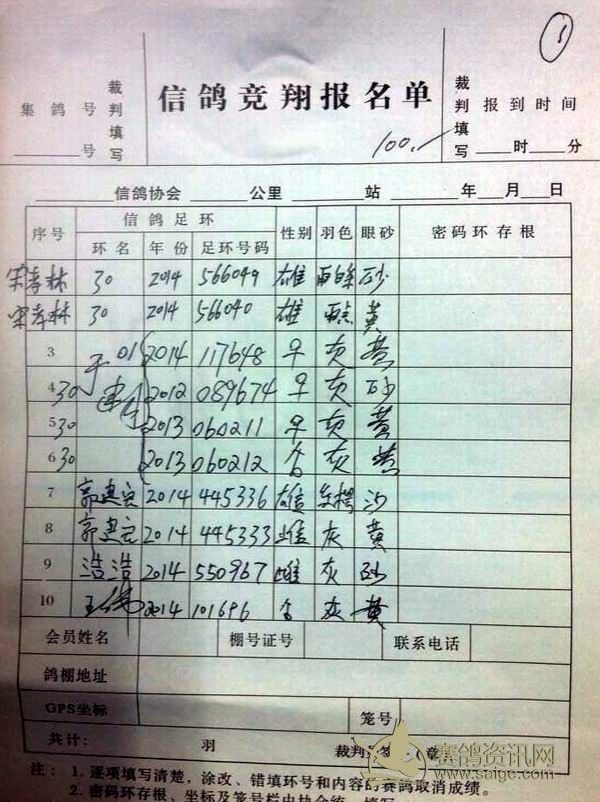 1
集鸽号
____号
裁判填写
信鸽竞翔报名单
100.
裁判填写
报到时间
____时____分
______信鸽协会______公里______站______年____月____日
序号 信鸽足环 性别 羽色 眼砂 密码环存根
环名 年份 足环号码
30 2014 566049 雄 砂
30 2014 566040 雄 黄
3 01 2014 117648 灰 黄
4 30 2012 089674 灰 砂
5 30 2013 060211 灰 黄
6 30 2013 060212 灰 黄
7 2014 445336 雄 沙
8 2014 445333 雌 灰 黄
9 浩浩 2014 550967 雌 灰 砂
10 2014 101696 灰 黄
会员姓名 棚号证号 联系电话
鸽棚地址
GPS坐标 笼号
共计： 羽 裁判 签 章
赛鸽资讯网
www.saigc.com
注：1. 逐项填写清楚，涂改、错填环号和内容的赛鸽取消成绩。
2. 密码环存根、坐标及笼号栏由协会统一填写